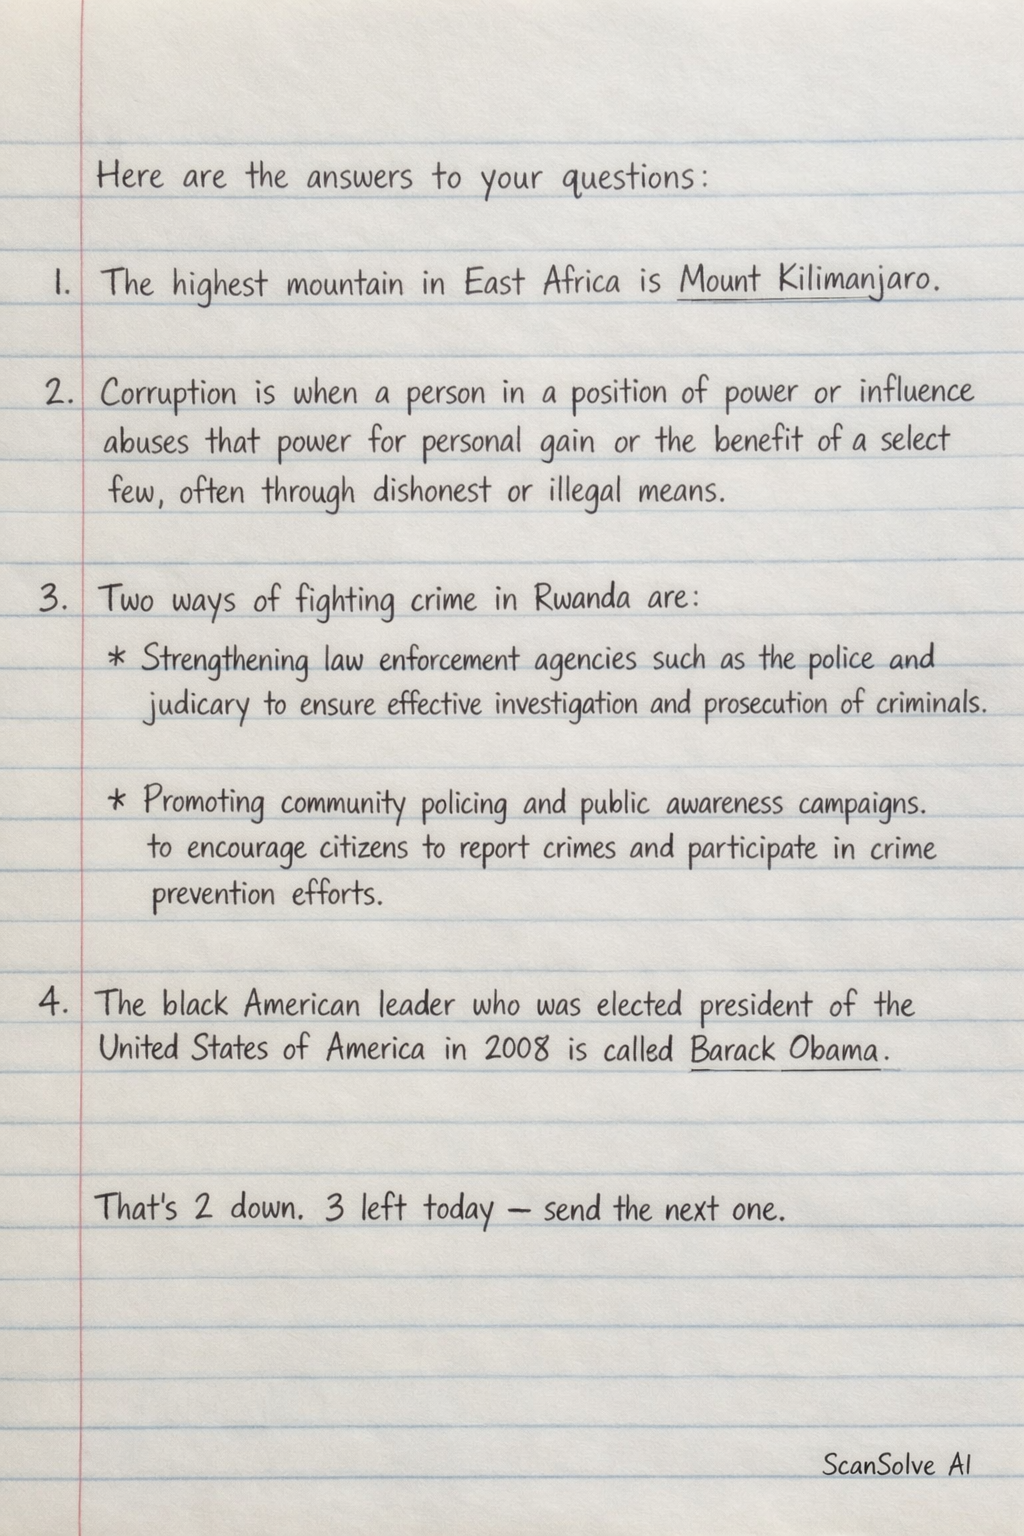 Here are the answers to your questions:
1. The highest mountain in East Africa is Mount Kilimanjaro.
2. Corruption is when a person in a position of power or influence
abuses that power for personal gain or the benefit of a select
few, often through dishonest or illegal means.
3. Two ways of fighting crime in Rwanda are:
* Strengthening law enforcement agencies such as the police and
judicary to ensure effective investigation and prosecution of criminals.
* Promoting community policing and public awareness campaigns.
to encourage citizens to report crimes and participate in crime
prevention efforts.
4. The black American leader who was elected president of the
United States of America in 2008 is called Barack Obama.
That's 2 down. 3 left today — send the next one.
ScanSolve AI